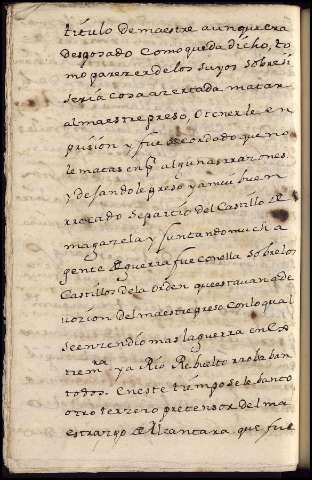 titulo de maestre aunque era
desposado como queda dicho, to
mo parezer de los suyos sobre si
seria cosa azertada matar
al maestre preso, o tenerle en
prision y fue acordado que no
le matasen por algunas rrazones.
y dejandole preso y a mui buen
rrecado se partio del castillo de
magazela y juntando mucha
gente de guerra fue con ella sobre los
castillos de la orden que estauan a de
uozion del maestre preso con lo qual
se enzendio mas la guerra en es
tremra ya Rio Rebuelto rrobaban
todos. en este tiempo se lebanto
otro terzero pretensor del ma
estrazgo de Alcantara que fue